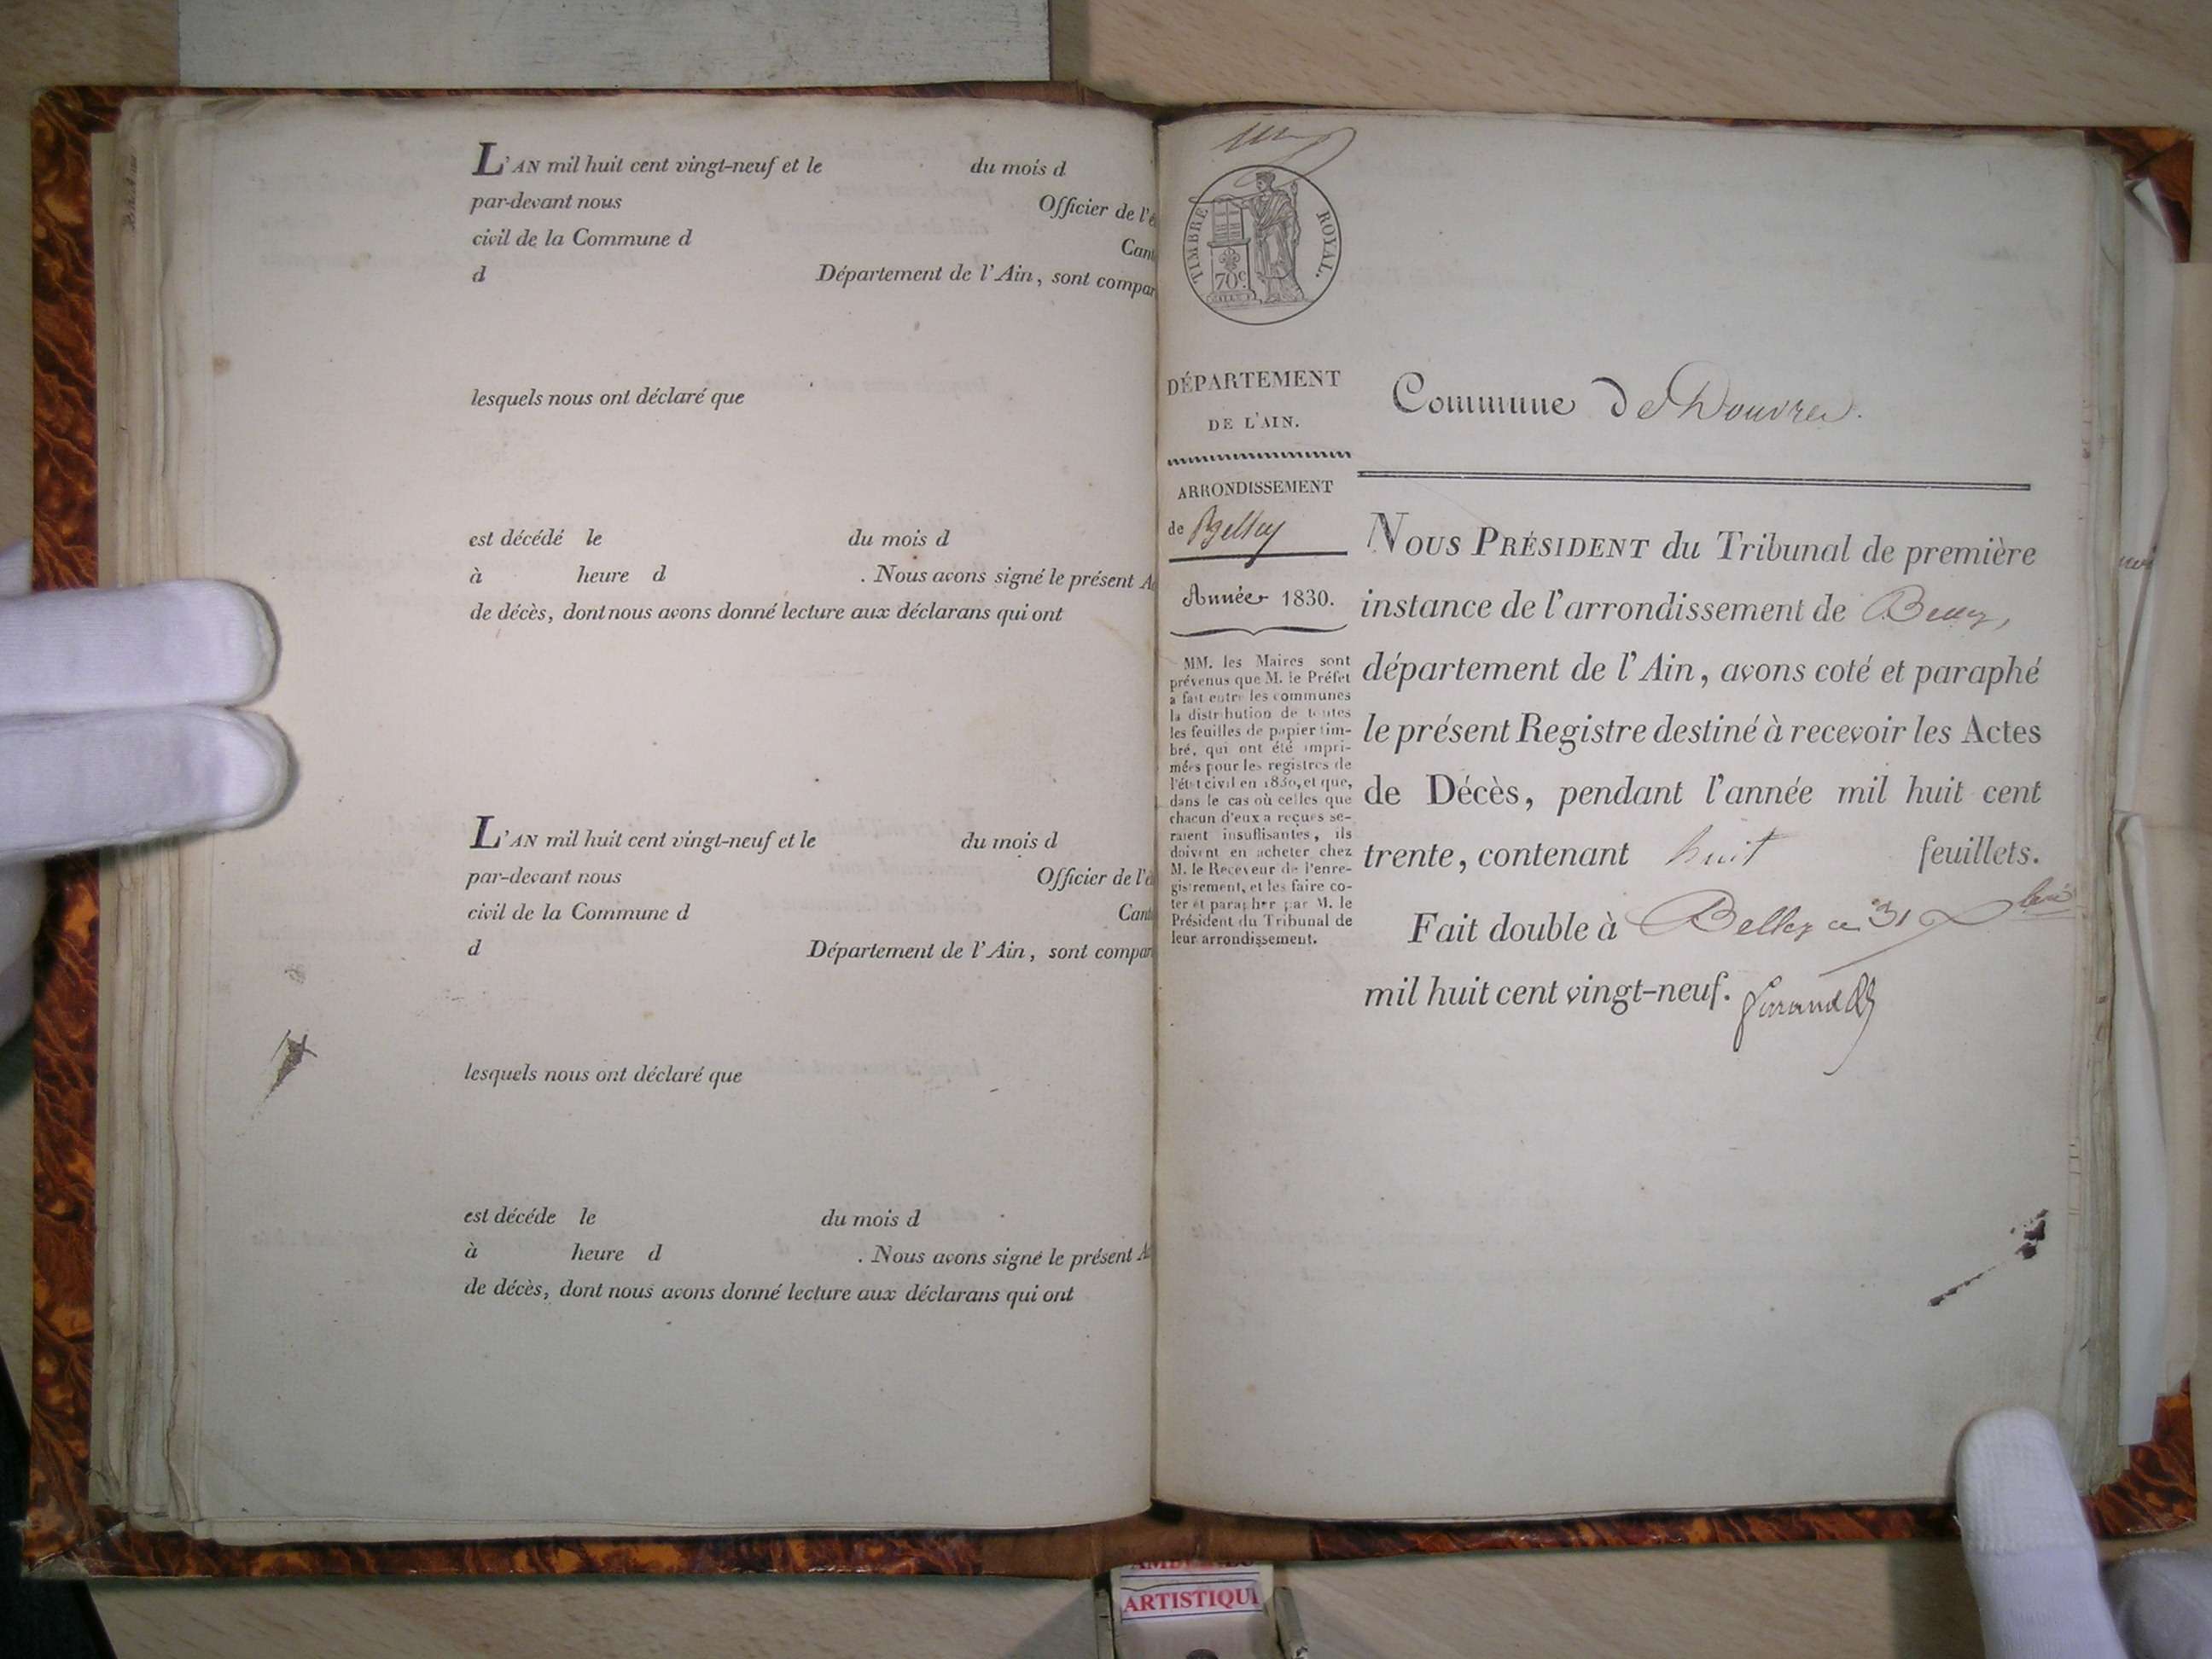 L'AN mil huit cent vingt-neuf et le du mois d
par-devant nous Officier de l'é
civil de la Commune d Cant
d Département de l'Ain, sont compar
lesquels nous ont déclaré que
est décédé le du mois d
à heure d . Nous avons signé le présent Ac
de décès, dont nous avons donné lecture aux déclarans qui ont
L'AN mil huit cent vingt-neuf et le du mois d
par-devant nous Officier de l'é
civil de la Commune d Cant
d Département de l'Ain, sont compar
lesquels nous ont déclaré que
est décéde le du mois d
à heure d . Nous avons signé le présent Ac
de décès, dont nous avons donné lecture aux déclarans qui ont
TIMBRE ROYAL.
70c.
DÉPARTEMENT
DE L'AIN.
ARRONDISSEMENT
de Belley
Année 1830.
MM. les Maires sont
prévenus que M. le Préfet
a fait entre les communes
la distribution de toutes
les feuilles de papier tim-
bré, qui ont été impri-
mées pour les registres de
l'état civil en 1830, et que,
dans le cas où celles que
chacun d'eux a reçues se-
raient insuffisantes, ils
doivent en acheter chez
M. le Receveur de l'enre-
gistrement, et les faire co-
ter et parapher par M. le
Président du Tribunal de
leur arrondissement.
Commune de Douvres.
NOUS PRÉSIDENT du Tribunal de première
instance de l'arrondissement de Belley,
département de l'Ain, avons coté et paraphé
le présent Registre destiné à recevoir les Actes
de Décès, pendant l'année mil huit cent
trente, contenant huit feuillets.
Fait double à Belley ce 31 Xbre
mil huit cent vingt-neuf.
ARTISTIQU